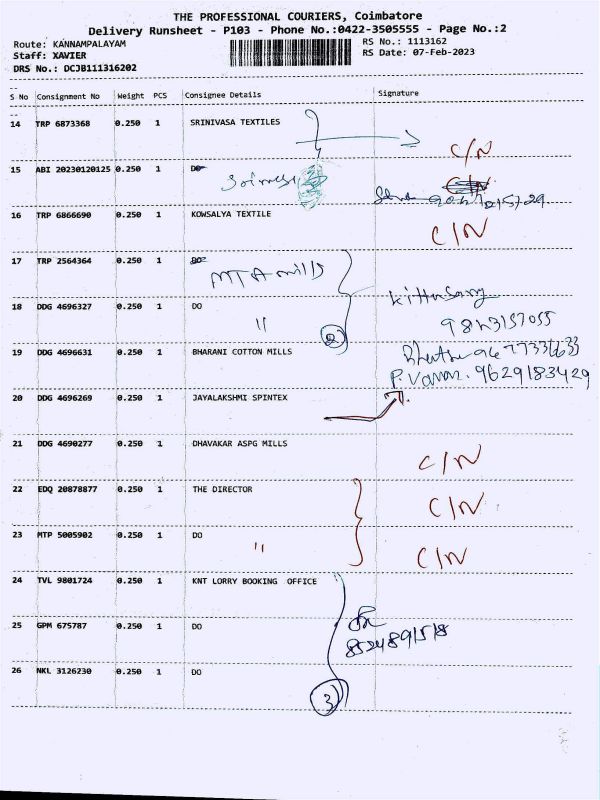 THE PROFESSIONAL COURIERS, Coimbatore
Delivery Runsheet - P103 - Phone No.:0422-3505555 - Page No.:2
Route: KANNAMPALAYAM RS No.: 1113162
Staff: XAVIER RS Date: 07-Feb-2023
DRS No.: DCJB111316202
S No Consignment No Weight PCS Consignee Details Signature
14 TRP 6873368 0.250 1 SRINIVASA TEXTILES
C/N
15 ABI 20230120125 0.250 1 DO
C/N
16 TRP 6866690 0.250 1 KOWSALYA TEXTILE
C/N
17 TRP 2564364 0.250 1 DO
MTA mills
18 DDG 4696327 0.250 1 DO
" 2
19 DDG 4696631 0.250 1 BHARANI COTTON MILLS
20 DDG 4696269 0.250 1 JAYALAKSHMI SPINTEX
9629183429
21 DDG 4690277 0.250 1 DHAVAKAR ASPG MILLS
C/N
22 EDQ 20878877 0.250 1 THE DIRECTOR
C/N
23 MTP 5005902 0.250 1 DO
" C/N
24 TVL 9801724 0.250 1 KNT LORRY BOOKING OFFICE
25 GPM 675787 0.250 1 DO
26 NKL 3126230 0.250 1 DO
3